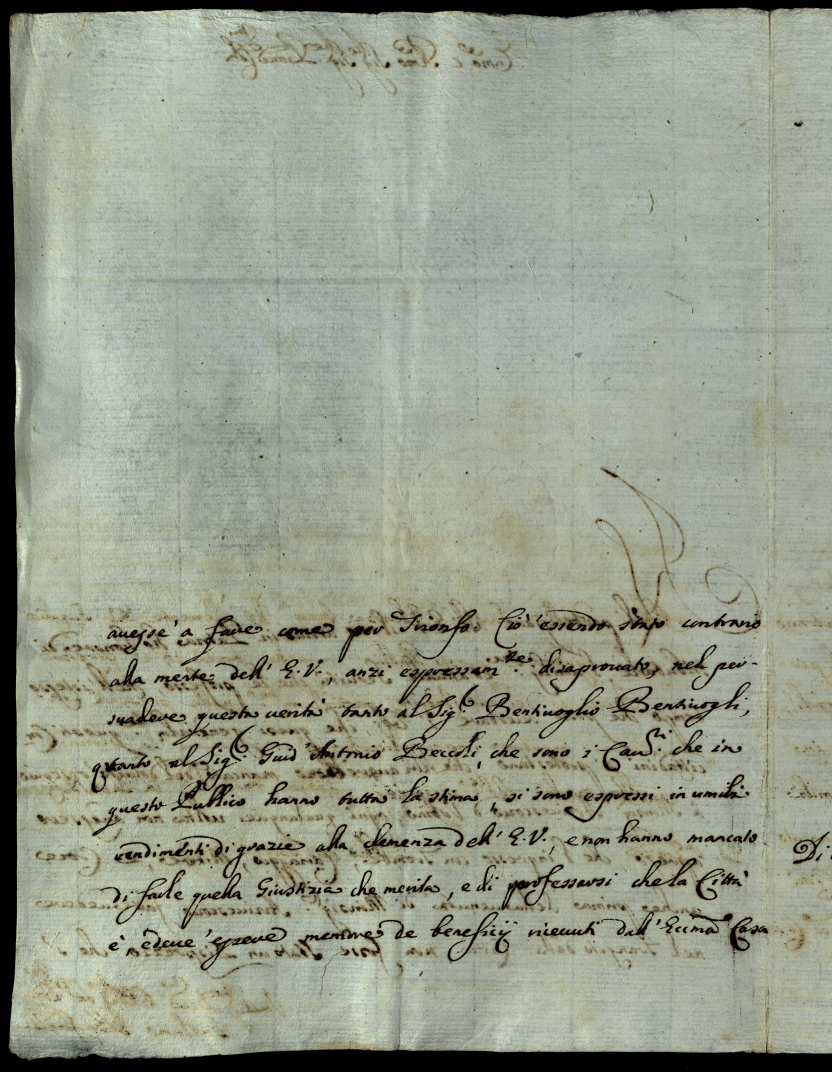 auesse' a fare come per Trionfo. Ciò essendo stato contrario
alla mente dell' E.V., anzi espressam.te disaprouato, nel per-
suadere questa uerità tanto al Sig.r Bentiuoglio Bentiuogli,
quanto al Sig.r Guid' Antonio Beccoli, che sono i Cau.ri che in
questo Publico hanno tutta la stima, si sono espressi in umili
rendimenti di grazie alla clemenza dell' E.V., e non hanno mancato
di farle quella Giustizia che merita, e di professarsi che la Città
è, e deue' essere memore de beneficij riceuuti dall' Eccma Casa
Di